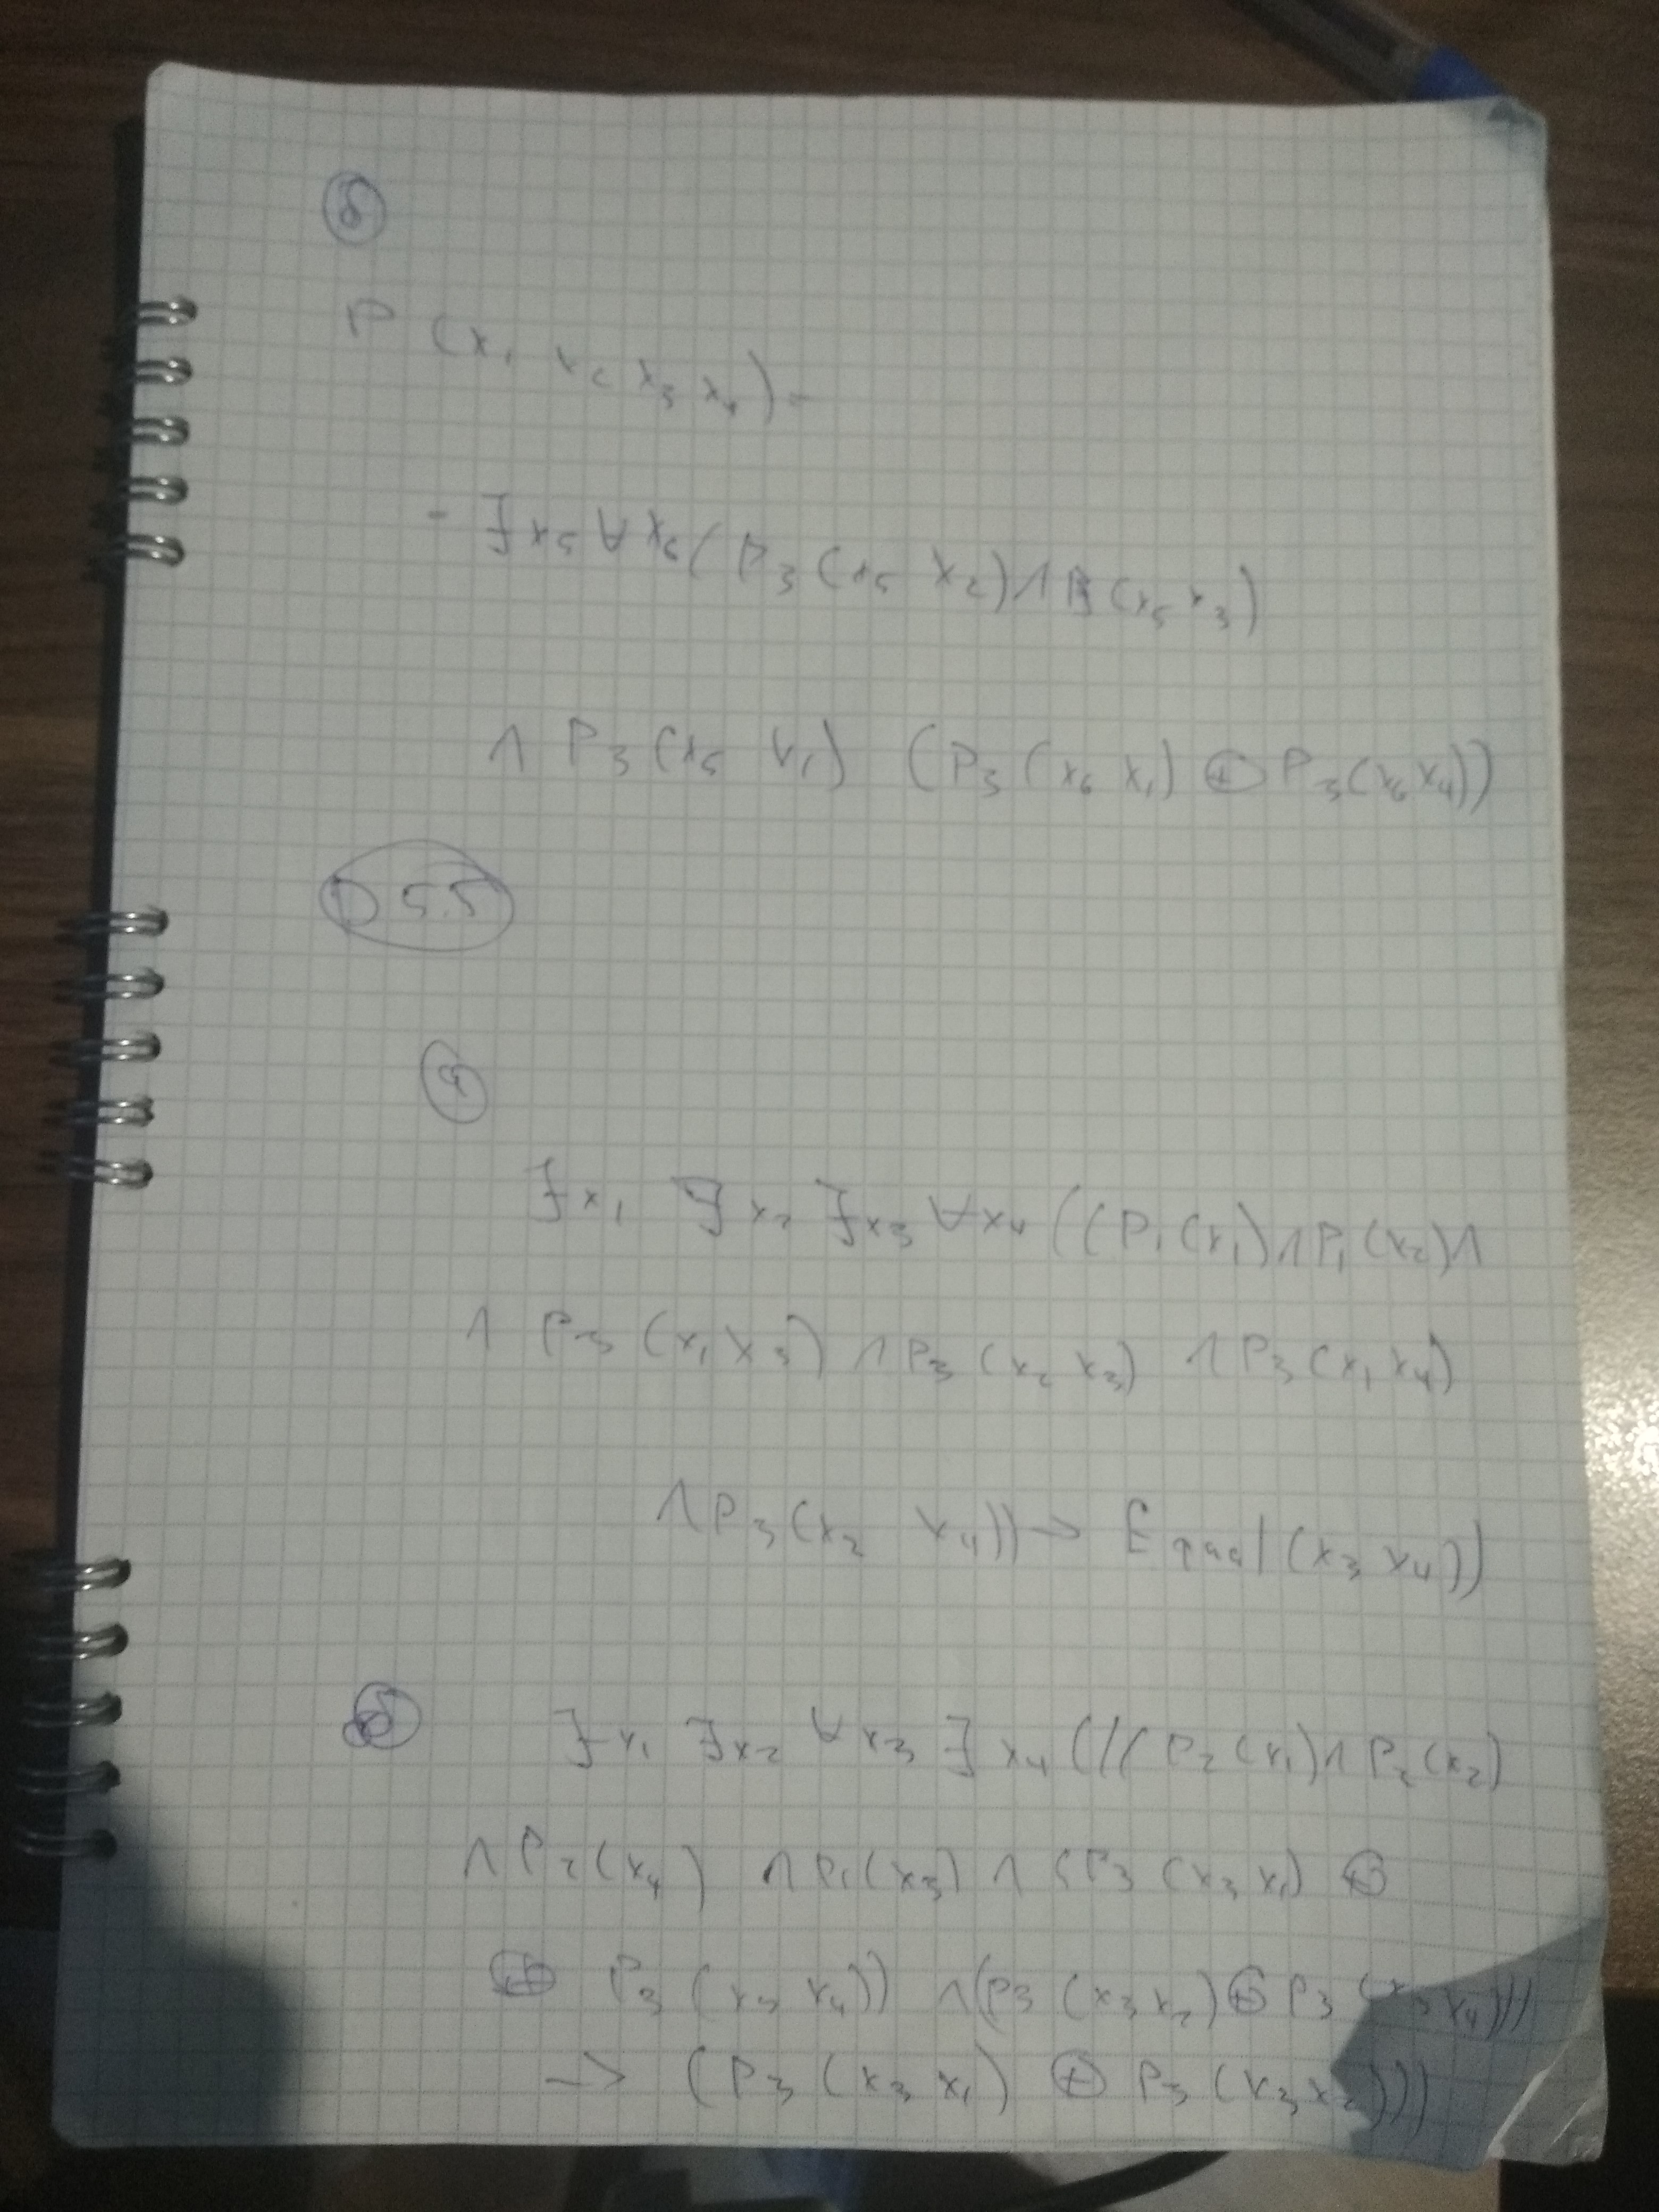 б
P (x₁ x₂ x₃ x₄) =
= ∃x₅ ∀x₆ (P₃(x₅ x₂) ∧ P₃(x₅ x₃)
∧ P₃(x₅ x₁) (P₃(x₆ x₁) ⊕ P₃(x₆ x₄))
D 5.5
a
∃x₁ ∃x₂ ∃x₃ ∀x₄ ((P₁(x₁) ∧ P₁(x₂) ∧
∧ P₃(x₁ x₃) ∧ P₃(x₂ x₃) ∧ P₃(x₁ x₄)
∧ P₃(x₂ x₄)) → Equal(x₃ x₄))
б ∃x₁ ∃x₂ ∀x₃ ∃x₄ (((P₂(x₁) ∧ P₂(x₂)
∧ P₂(x₄) ∧ P₁(x₃) ∧ (P₃(x₃ x₁) ⊕
⊕ P₃(x₃ x₄)) ∧ (P₃(x₃ x₂) ⊕ P₃(x₃ x₄)))
→ (P₃(x₃ x₁) ⊕ P₃(x₃ x₂)))